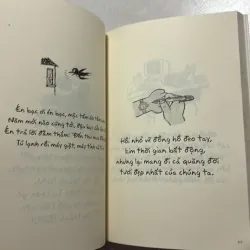 Én bạc ơi én bạc, mặc tấm áo
Năm mới nào cũng tới, đậu
Én trả lời đằm thắm: "Đi
Tủ lạnh rồi máy giặt, máy
Hồi nhỏ vẽ đồng hồ đeo tay,
kim thời gian bất động,
nhưng lại mang đi cả quãng đời
tươi đẹp nhất của chúng ta.